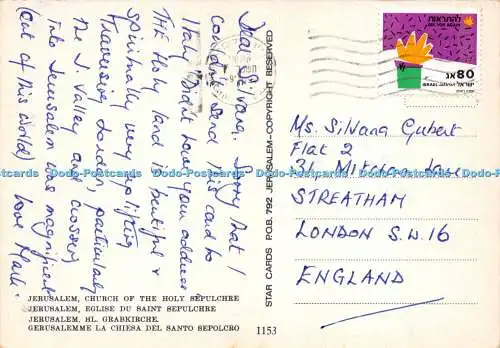 Dear Silvana. Sorry that I
couldn't send this card to
Italy. Didn't have your address
The Holy land is beautiful &
spiritually very uplifting
Traversing Jordan, particularly
the J. Valley and crossing
into Jerusalem was magnificent
(out of this world) Love Mark.
JERUSALEM, CHURCH OF THE HOLY SEPULCHRE
JERUSALEM, EGLISE DU SAINT SEPULCHRE
JERUSALEM, HL. GRABKIRCHE.
GERUSALEMME LA CHIESA DEL SANTO SEPOLCRO
1153
STAR CARDS P.O.B. 792 JERUSALEM–COPYRIGHT RESERVED
להתראות
SEE YOU AGAIN
80 אג
ISRAEL ישראל
Ms. Silvana Gubert
Flat 2
31
STREATHAM
LONDON S.W.16
ENGLAND
Dodo-Postcards Dodo-Postcards Dodo-Postcards Dodo-Postcards Dodo-Postcards